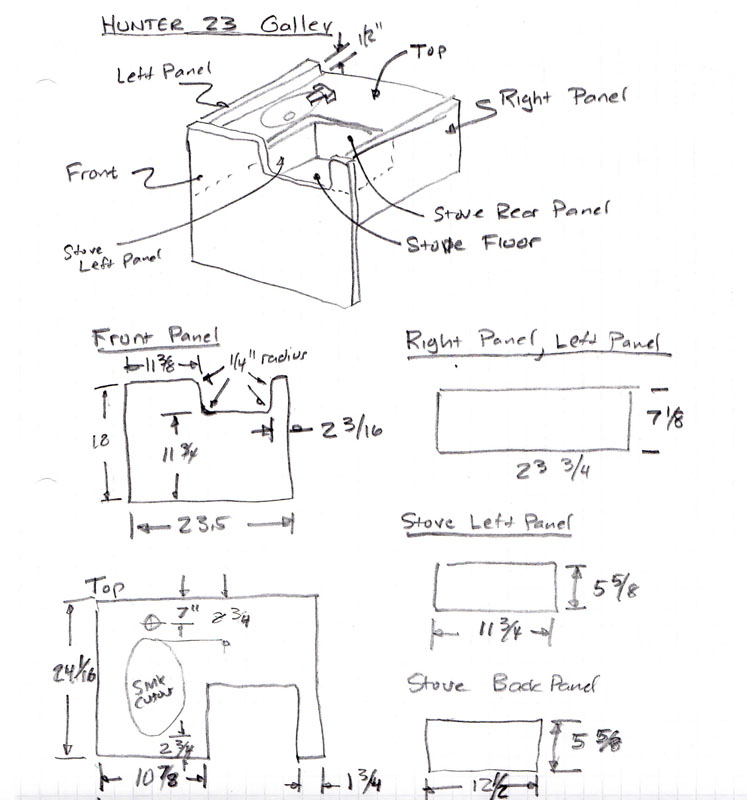 HUNTER 23 Galley
1/2"
Top
Left Panel
Right Panel
Front
Stove Rear Panel
Stove Floor
Stove
Left Panel
Front Panel
11 3/8
1/4" radius
18
11 3/4
2 3/16
23.5
Right Panel, Left Panel
7 1/8
23 3/4
Stove Left Panel
5 5/8
11 3/4
Top
7"
2 3/4
24 1/16
Sink
cutout
2 3/4
10 7/8
1 3/4
Stove Back Panel
5 5/8
12 1/2